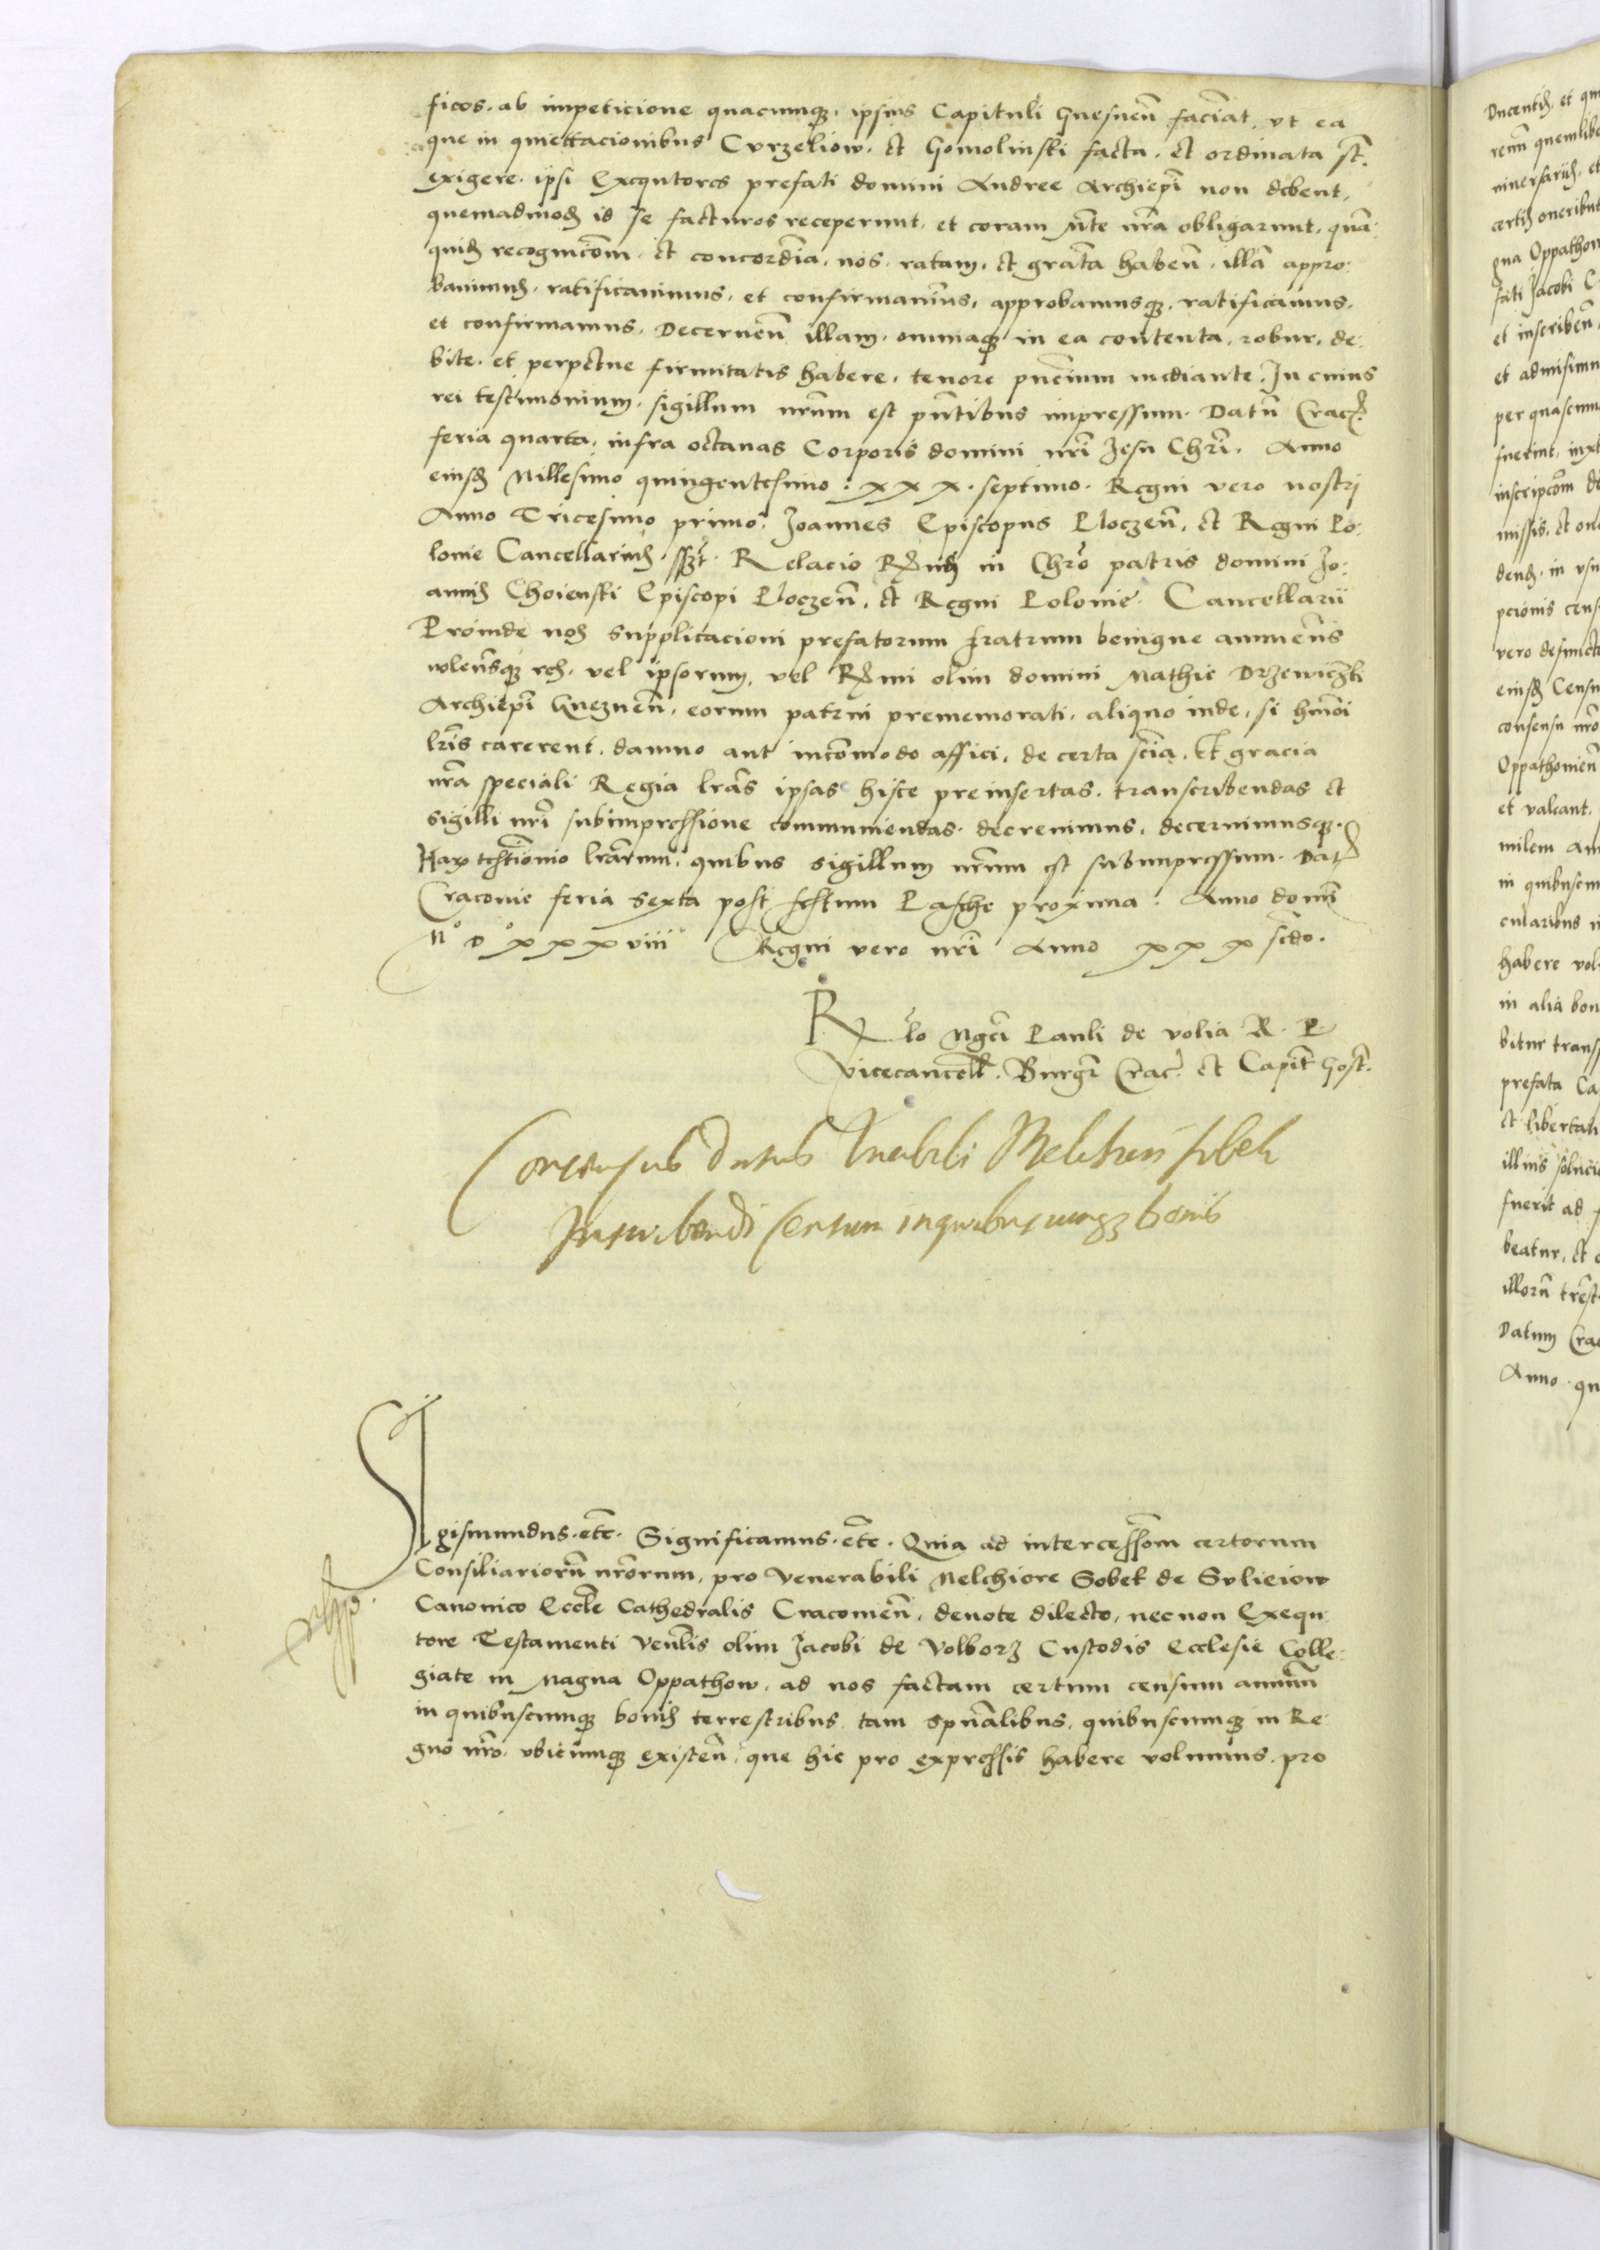 ficos. ab impeticione quacumq₃. ipsius Capituli Gnesnen̄ faciāt, vt ea
que in quiettacionibus Cvrzeliow. et Gomolinski facta. et ordinata st̄.
exigere. ipsi Exequtores prefati domini Andree Archiepī non debent,
quemadmodꝫ id se facturos receperunt. et coram n̄te nr̄a obligarunt. quā:
quidꝫ recognicōm. et concordiā. nos. ratam. et grātā habeñ. illā appro:
bauimus. ratificauimus. et confirmauimus, approbamusq₃. ratificamus.
et confirmamus. Decerneñ illam. omniaq₃ in ea contenta. robur. de:
bite. et perpetue firmitatis habere. tenore pn̄cium mediante. In cuius
rei testimonium. sigillum nr̄um est pn̄tibus impressum. Datū Crac̄.
feria quarta. infra octauas Corporis domini nr̄i Jesu Chrī. Anno
eiusdꝫ Millesimo quingentesimo: xxx. septimo. Regni vero nostri
Anno Tricesimo primo. Joannes Episcopus Ploczeñ, et Regni Po:
lonie Cancellarius. sszt. Relacio Rndi in Chrō patris domini Jo:
annis Choienski Episcopi Ploczeñ, et Regni Polonie. Cancellarii
Proinde nos supplicacioni prefatorum fratrum benigne annuentis
nolen̄sq₃ eos. vel ipsorum, vel R̄mi olim domini Mathie Drzewiczki
Archiepī Gnezneñ, eorum patrui prememorati. aliquo inde, si hmōi
lr̄is carerent. damno aut incōmodo affici, de certa sciā. Et gracia
nr̄a speciali Regia lrās ipsas hisce preinsertas. transcribendas et
sigilli nrī subimpressione communiendas. decreuimus, decernimusq₃.
Harꝫ testīonio lrārum, quibus sigillum nr̄um est subimpressum. Datꝫ
Cracovie feria sexta post festum Pasche proxima. Anno domī
M° D° xxxviii Regni vero nrī Anno xxx scdo.
Rlo Mgci Pauli de volia R. P.
Vicecancell. Burgr̄ Crac̄. et Capit̄ Gost̄.
Concensus datus Vnerabili Melchiori sobek
Inscribendi Censum in quibuscumq₃ bonis
Sigismundus. etc̄. Significamus. etc̄. Quia ad intercessōm certorum
Consiliariorū nr̄orum, pro Venerabili Melchiore Sobek de Svlieiow
Canonico Eccl̄e Cathedralis Cracovieñ, deuote dilecto, nec non Exequ:
tore Testamenti Ven̄lis olim Jacobi de Volborz Custodis Ecclesie Colle:
giate in Magna Oppathow, ad nos factam certum censum annuū
in quibuscumq₃ bonis terrestribus tam spūalibus, quibuscumq₃ in Re
gno nr̄o. vbicumq₃ existeñ. que hic pro expressis habere volumus. pro
Ducentis, et
renū quemlibe
niuersariis, et
certis oneribus
gna Oppathow
fati Jacobi
et inscribeñ
et admisimu
per quascum
fuerint, iuxt
inscripcōm de
missis, et
dendꝫ. in vsu
pcionis cens
vero defuncti
eiusdꝫ Censu
consensu nr̄o
Oppathowieñ
et valeant.
milem an
in quibuscum
cularibus
habere vol
in alia bon
bitur trans
prefata Ca
et libertati
illius soluci
fuerit ad
beatur, et
illorū
Datum Cra
Anno. qu